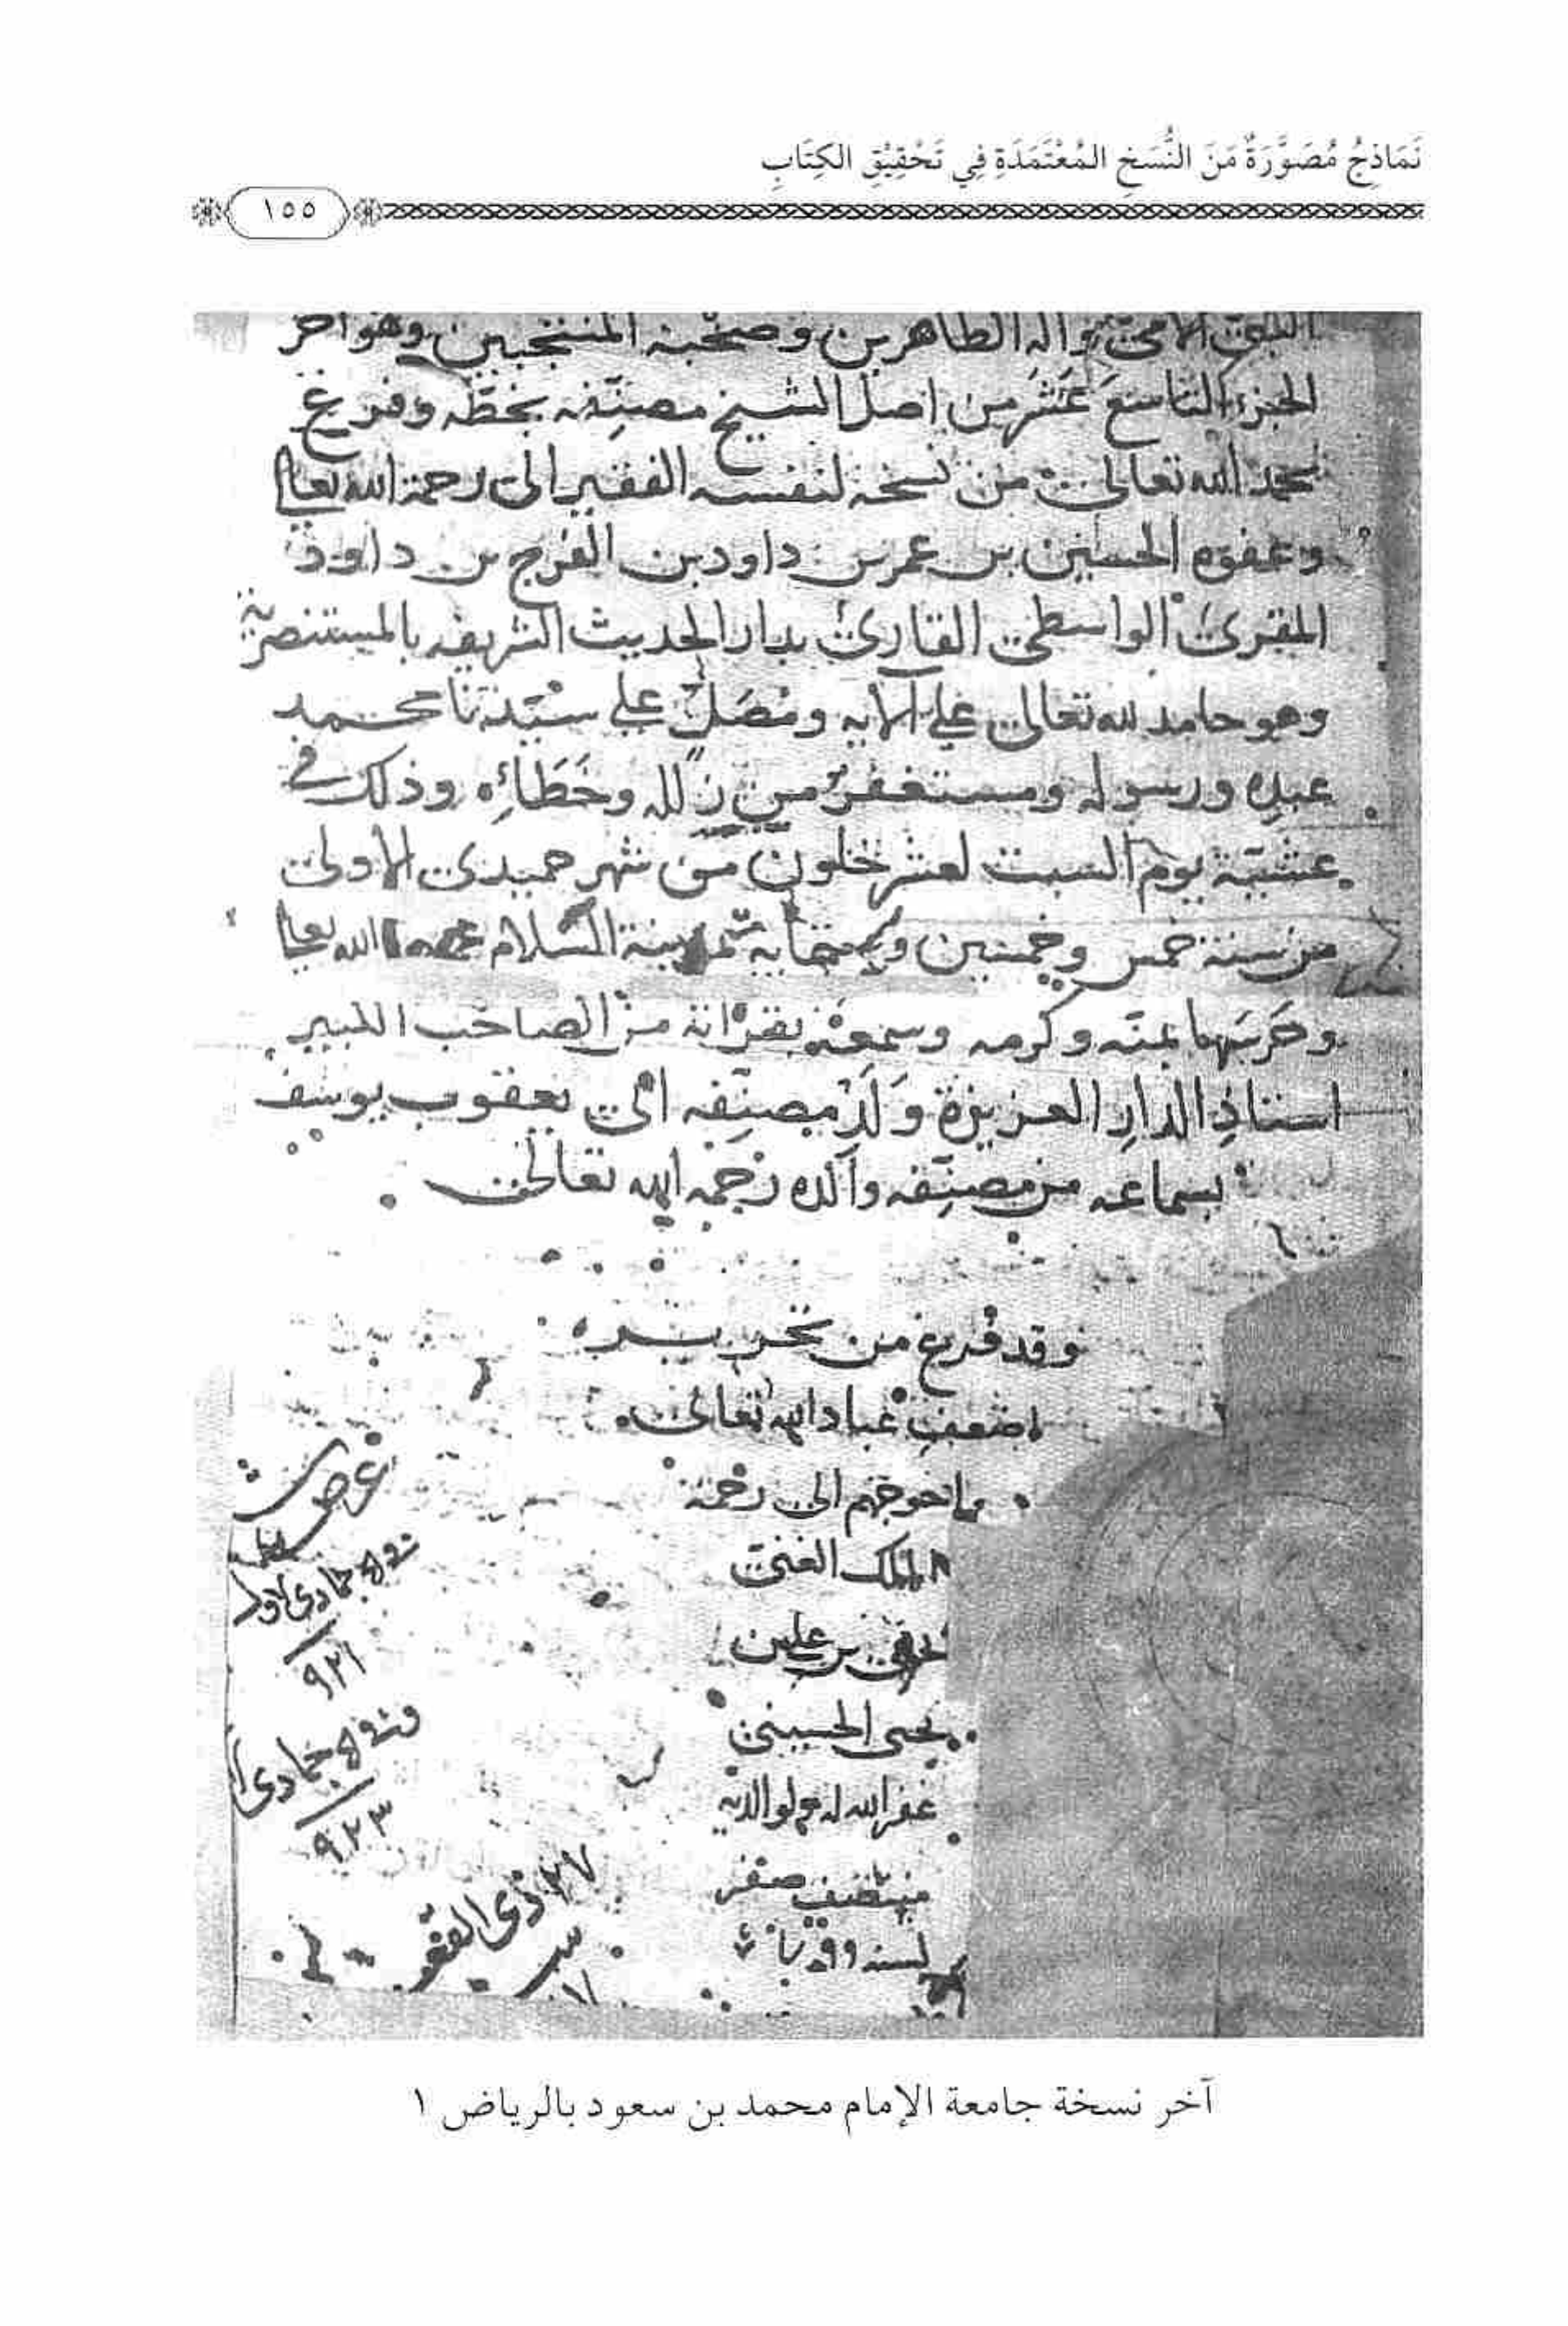 نَمَاذِجُ مُصَوَّرَةٌ مَنَ النُّسَخِ المُعْتَمَدَةِ فِي تَحْقِيْقِ الكِتَابِ
١٥٥
النبي الامي واله الطاهرين وصحبه المنتجبين وهو اخر
الجزء التاسع عَشَر من اصل الشيخ مصنِّفه بخطّه وفرغ
بحمد الله تعالى من نسخه لنفسه الفقير الى رحمة الله تعالى
وعفوه الحسين بن عمر بن داود بن الفرج بن داود
المقرئ الواسطي القارئ بدار الحديث الشريفه بالمستنصرية
وهو حامد لله تعالى علي الايه ومُصَلٍّ علي سيّدنا محمد
عبدِه ورسوله ومستغفرٌ من زَلَلِه وخَطَائِه وذلك في
عشيّة يوم السبت لعشر خلون من شهر جميدى الاولى
من سنة خمس وخمسين وستمايه بمدينة السّلام الله تعالى
وحَرسَها بمنّه وكرمه وسمعه بقراته من الصاحب الكبير
استاذِ الدارِ العزيزة وَلَدِ مصنِّفه ابي يعقوب يوسف
بسماعه من مصنِّفه والده رحمه الله تعالى
وقد فرغ من تحريره
اضعف عباد الله تعالى
واحوجهم الى رحمة
الملك الغني
بن علي بن
يحيى الحسيني
غفر الله له ولوالديه
منتصف صفر
لسنه
عرضت
جمادى الاول
٩٢١
جمادى
٩٢٣
٢٧ ذي القعده
آخر نسخة جامعة الإمام محمد بن سعود بالرياض ١